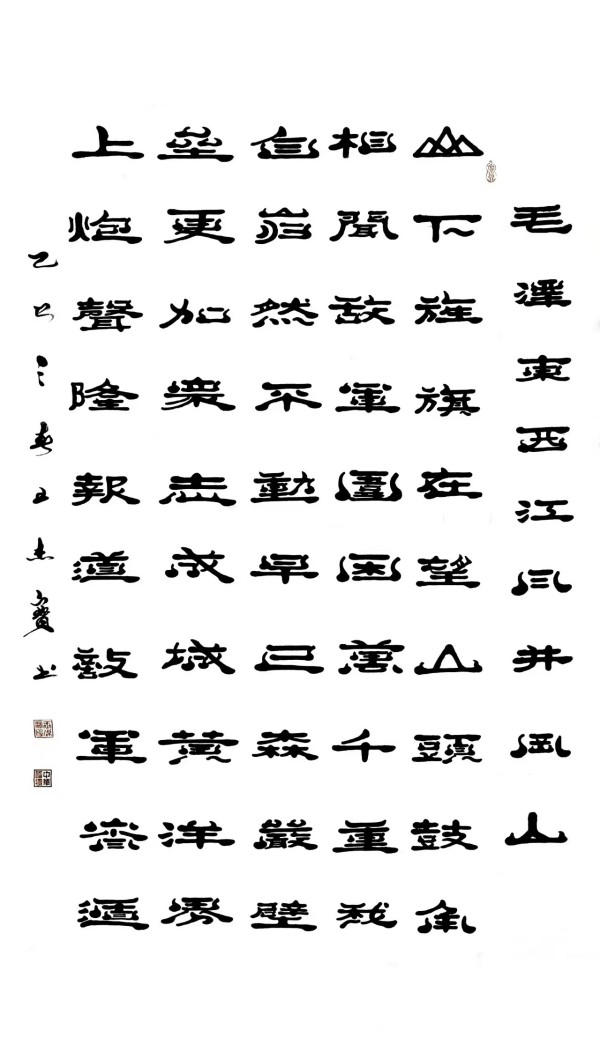 毛澤東西江月井岡山
山下旌旗在望山頭鼓角
相聞敵軍圍困萬千重我
自岿然不動早已森嚴壁
壘更加衆志成城黃洋界
上炮聲隆報道敵軍宵遁
乙巳之春王杰書